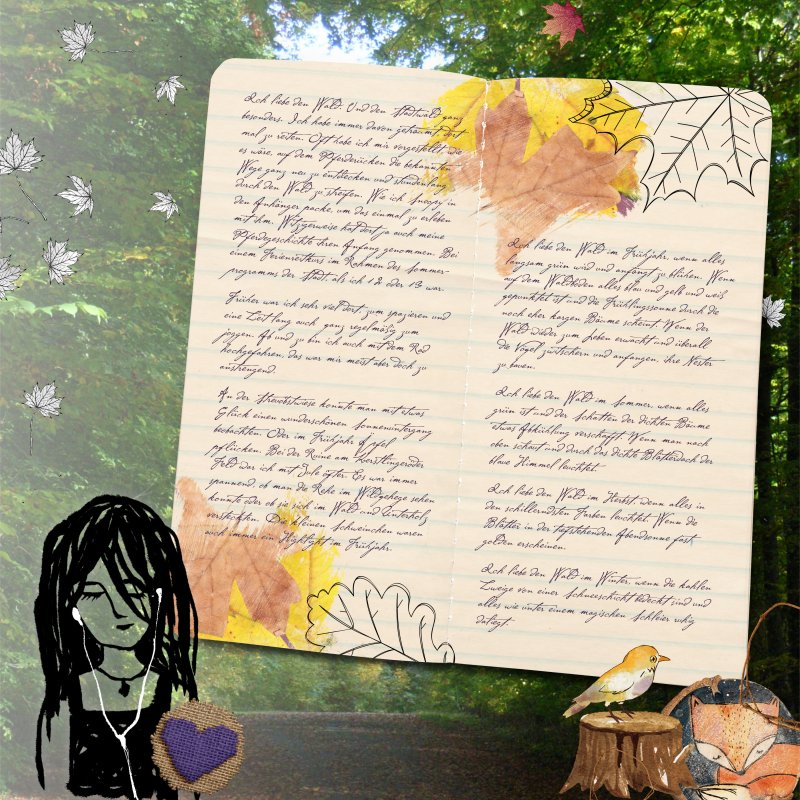 Ich liebe den Wald. Und den Stadtwald ganz
besonders. Ich habe immer davon geträumt dort
mal zu reiten. Oft habe ich mir vorgestellt wie
es wäre, auf dem Pferderücken die bekannten
Wege ganz neu zu entdecken und stundenlang
durch den Wald zu streifen. Wie ich Snoopy in
den Anhänger packe, um das einmal zu erleben
mit ihm. Witzigerweise hat dort ja auch meine
Pferdegeschichte ihren Anfang genommen. Bei
einem Ferienreitkurs im Rahmen des Sommer-
programms der Stadt als ich 12 oder 13 war.
Früher war ich sehr viel dort, zum spazieren und
eine Zeit lang auch ganz regelmäßig zum
joggen. Ab und zu bin ich auch mit dem Rad
hochgefahren, das war mir meist aber doch zu
anstrengend.
An der Streuobstwiese konnte man mit etwas
Glück einen wunderschönen Sonnenuntergang
beobachten. Oder im Frühjahr Äpfel
pflücken. Bei der Ruine am
Feld war ich mit Jule öfter. Es war immer
spannend, ob man die Rehe im Wildgehege sehen
konnte oder ob sie sich im Wald und Unterholz
versteckten. Die kleinen Schweinchen waren
auch immer ein Highlight im Frühjahr.
Ich liebe den Wald im Frühjahr, wenn alles
langsam grün wird und anfängt zu blühen. Wenn
auf dem Waldboden alles blau und gelb und weiß
gepunktet ist und die Frühlingssonne durch die
noch eher kargen Bäume scheint. Wenn der
Wald wieder zum Leben erwacht und überall
die Vögel zwitschern und anfangen, ihre Nester
zu bauen.
Ich liebe den Wald im Sommer, wenn alles
grün ist und der Schatten der dichten Bäume
etwas Abkühlung verschafft. Wenn man nach
oben schaut und durch das dichte Blätterdach der
blaue Himmel leuchtet.
Ich liebe den Wald im Herbst wenn alles in
den schillerndsten Farben leuchtet. Wenn die
Blätter in der tiefstehenden Abendsonne fast
golden erscheinen.
Ich liebe den Wald im Winter, wenn die kahlen
Zweige von einer Schneeschicht bedeckt sind und
alles wie unter einem magischen Schleier ruhig
daliegt.